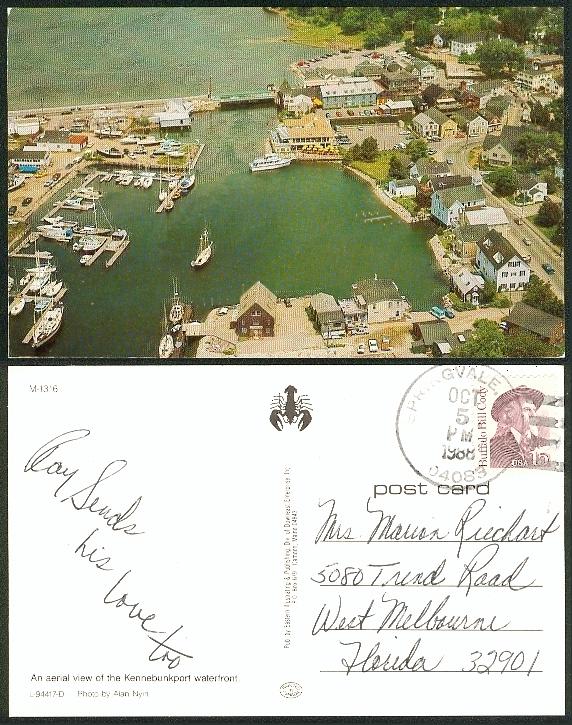 M-1316
Ray Sends
his
love
too
An aerial view of the Kennebunkport waterfront.
L-94417-D Photo by Alan Nyiri
Pub. by Eastern Illustrating & Publishing, Div. of Downeast Enterprise, Inc.
P.O. Box Camden, Maine 04843
SPRINGVALE,
OCT
5
PM
1988
04083
Buffalo Bill Cody
USA 15
post card
Mrs. Marion Riechart
5080 Trend Road
West Melbourne
Florida 32901